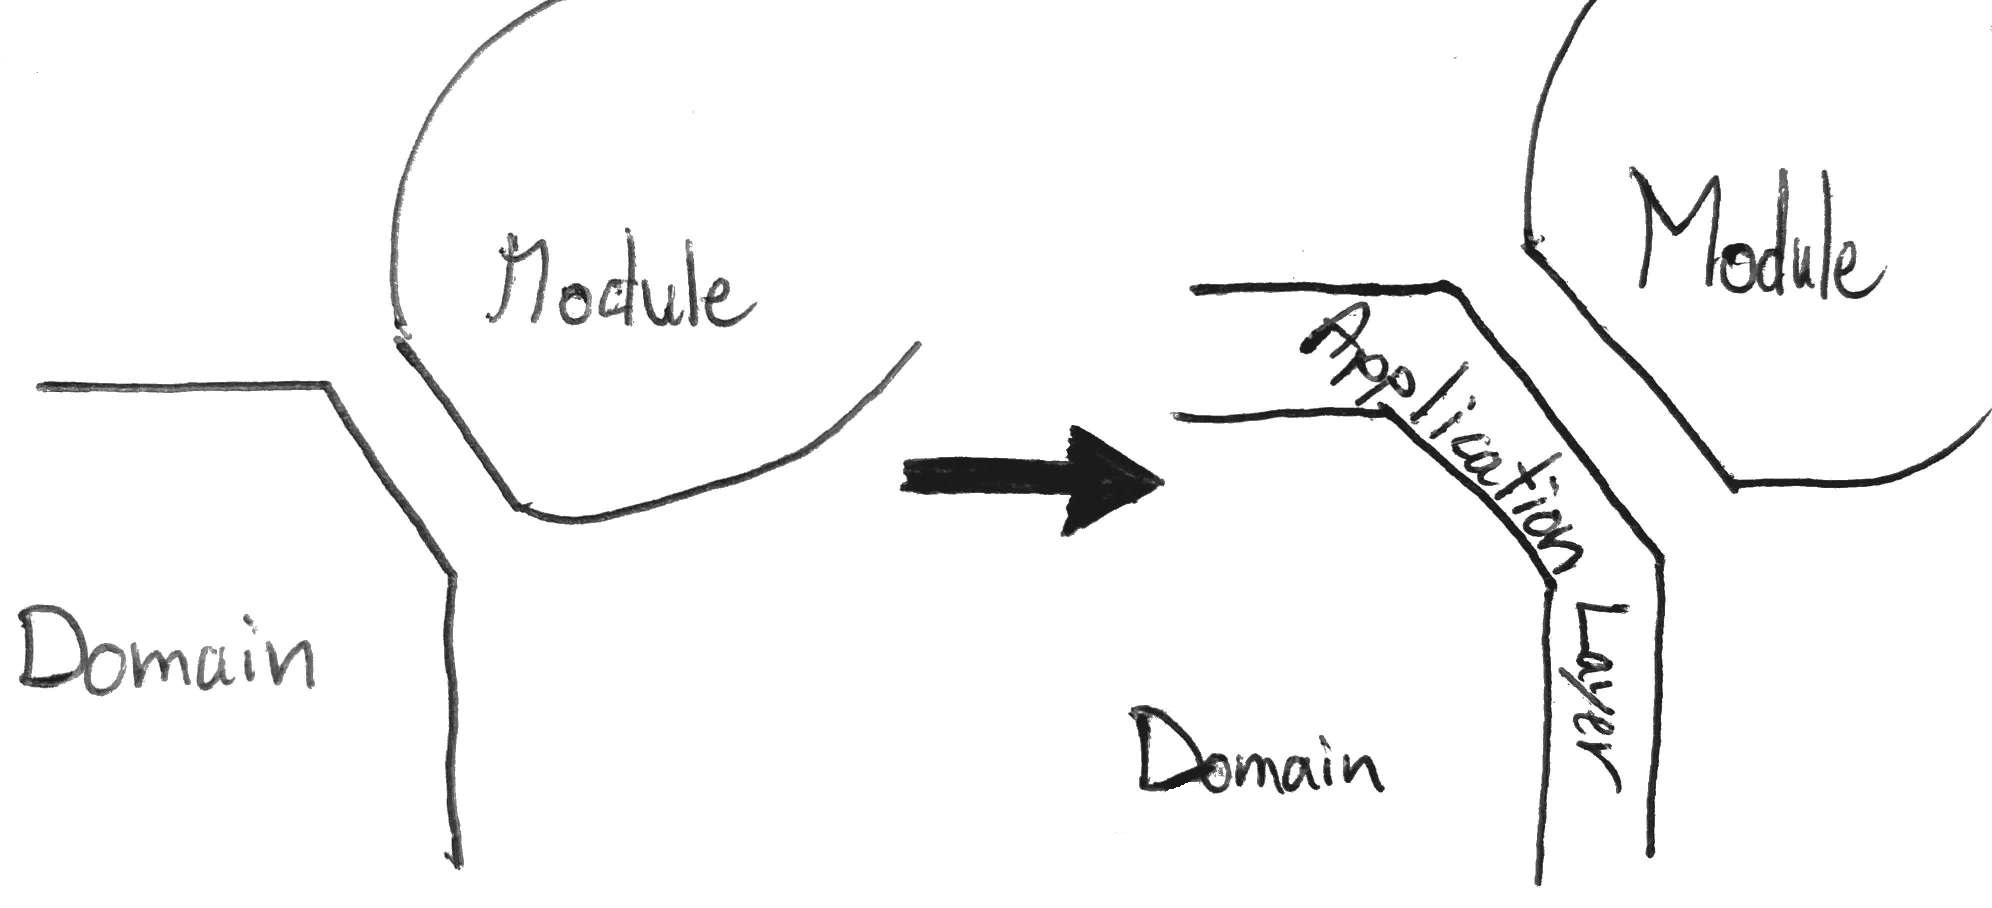 Module
Domain
Module
Application Layer
Domain